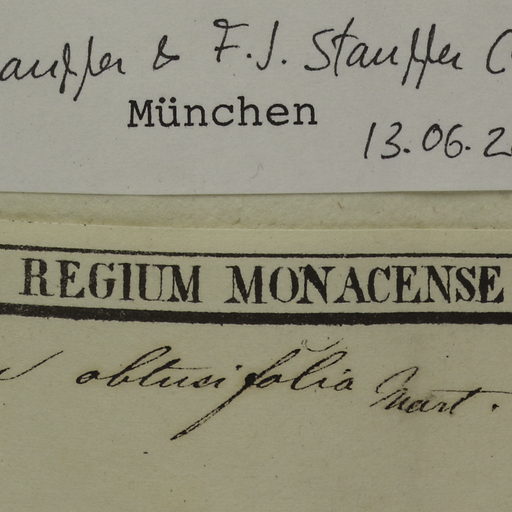 & F. J. Stauffer
München
13.06.
REGIUM MONACENSE
obtusifolia Mart.